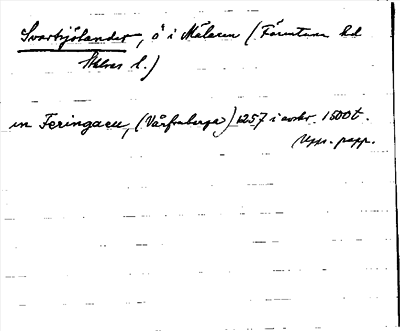 Svartsjölandet, ö i Mälaren (Färentuna hd
Sthlms l.)
in Feringaeu, (Vårfruberga) 1257 i avskr. 1500 t.
Upps. papp.